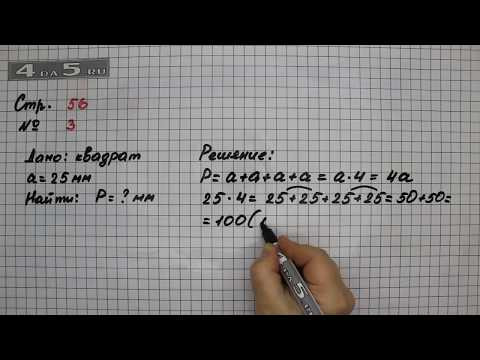 4 DA 5.RU
Стр. 56
№ 3
Дано: квадрат
a = 25 мм
Найти: P = ? мм
Решение:
P = a+a+a+a = a·4 = 4a
25·4 = 25+25+25+25 = 50+50 =
= 100 (
4 DA 5.RU